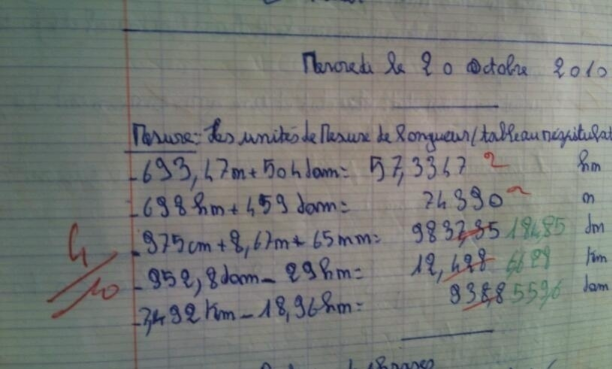 Mercredi le 20 octobre 2010
Mesure: Les unités de Mesure de Longueur/tableau récapitulat
- 693,47m + 504dam = 57,3347 hm
- 698hm + 459dam = 74390 m
- 975cm + 8,67m + 65mm = 983735 184,85 dm
- 952,8dam - 29hm = 12,428 6,628 Km
- 7,492Km - 18,96hm = 938,8 559,6 dam
4/10